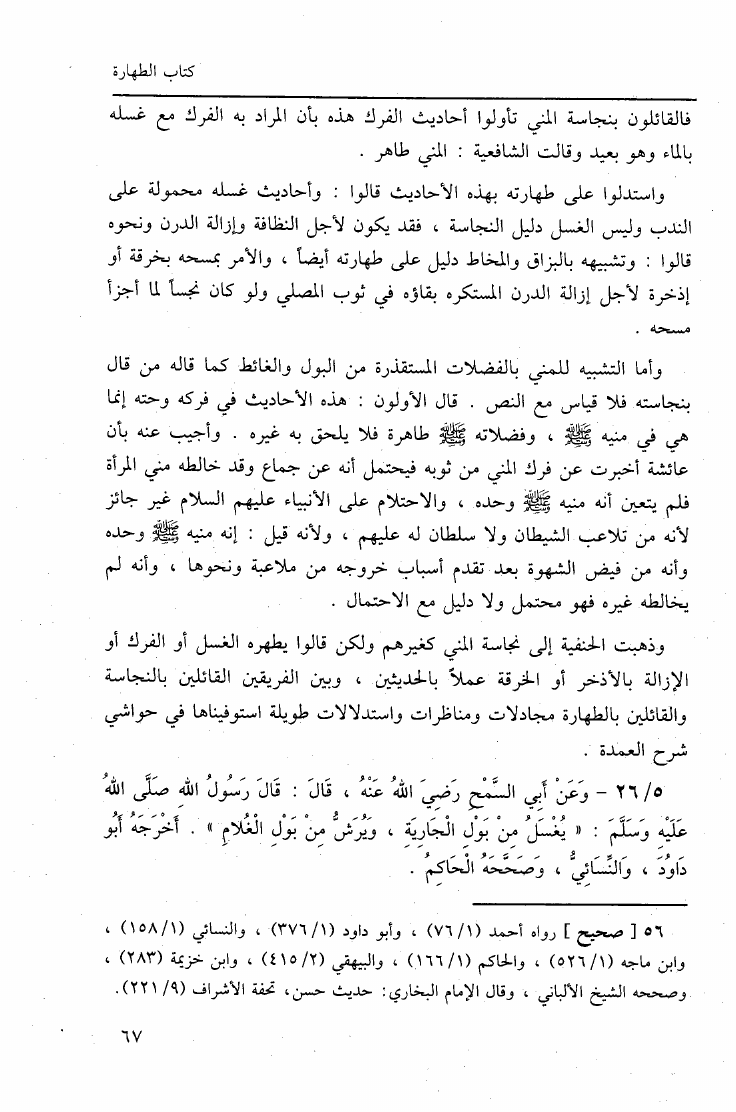 كتاب الطهارة
فالقائلون بنجاسة المني تأولوا أحاديث الفرك هذه بأن المراد به الفرك مع غسله
بالماء وهو بعيد وقالت الشافعية : المني طاهر .
واستدلوا على طهارته بهذه الأحاديث قالوا : وأحاديث غسله محمولة على
الندب وليس الغسل دليل النجاسة ، فقد يكون لأجل النظافة وإزالة الدرن ونحوه
قالوا : وتشبيهه بالبزاق والمخاط دليل على طهارته أيضاً ، والأمر بمسحه بخرقة أو
إذخرة لأجل إزالة الدرن المستكره بقاؤه في ثوب المصلي ولو كان نجساً لما أجزأ
مسحه .
وأما التشبيه للمني بالفضلات المستقذرة من البول والغائط كما قاله من قال
بنجاسته فلا قياس مع النص . قال الأولون : هذه الأحاديث في فركه وحته إنما
هي في منيه ﷺ ، وفضلاته ﷺ طاهرة فلا يلحق به غيره . وأجيب عنه بأن
عائشة أخبرت عن فرك المني من ثوبه فيحتمل أنه عن جماع وقد خالطه مني المرأة
فلم يتعين أنه منيه ﷺ وحده ، والاحتلام على الأنبياء عليهم السلام غير جائز
لأنه من تلاعب الشيطان ولا سلطان له عليهم ، ولأنه قيل : إنه منيه ﷺ وحده
وأنه من فيض الشهوة بعد تقدم أسباب خروجه من ملاعبة ونحوها ، وأنه لم
يخالطه غيره فهو محتمل ولا دليل مع الاحتمال .
وذهبت الحنفية إلى نجاسة المني كغيرهم ولكن قالوا يطهره الغسل أو الفرك أو
الإزالة بالأذخر أو الخرقة عملاً بالحديثين ، وبين الفريقين القائلين بالنجاسة
والقائلين بالطهارة مجادلات ومناظرات واستدلالات طويلة استوفيناها في حواشي
شرح العمدة .
٢٦/٥ - وَعَنْ أَبِي السَّمْحِ رَضِيَ اللهُ عَنْهُ ، قَالَ : قَالَ رَسُولُ اللهِ صَلَّى اللهُ
عَلَيْهِ وَسَلَّمَ : « يُغْسَلُ مِنْ بَوْلِ الْجَارِيَةِ ، وَيُرَشُّ مِنْ بَوْلِ الْغُلَامِ » . أَخْرَجَهُ أَبُو
دَاوُدَ ، وَالنَّسَائِيُّ ، وَصَحَّحَهُ الْحَاكِمُ .
٥٦ [ صحيح ] رواه أحمد (٧٦/١) ، وأبو داود (٣٧٦/١) ، والنسائي (١٥٨/١) ،
وابن ماجه (٥٢٦/١) ، والحاكم (١٦٦/١) ، والبيهقي (٤١٥/٢) ، وابن خزيمة (٢٨٣) ،
وصححه الشيخ الألباني ، وقال الإمام البخاري: حديث حسن، تحفة الأشراف (٢٢١/٩).
٦٧